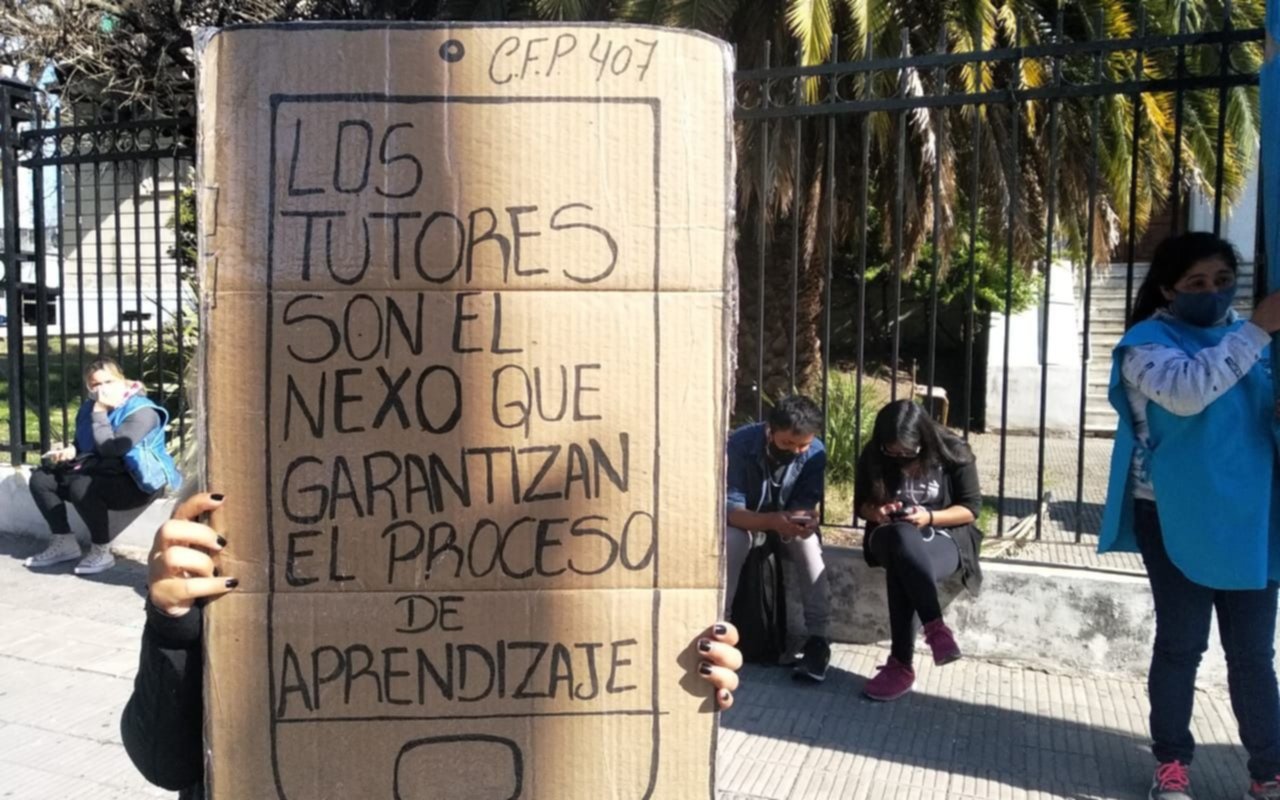 C.F.P. 407
LOS
TUTORES
SON EL
NEXO QUE
GARANTIZAN
EL PROCESO
DE
APRENDIZAJE